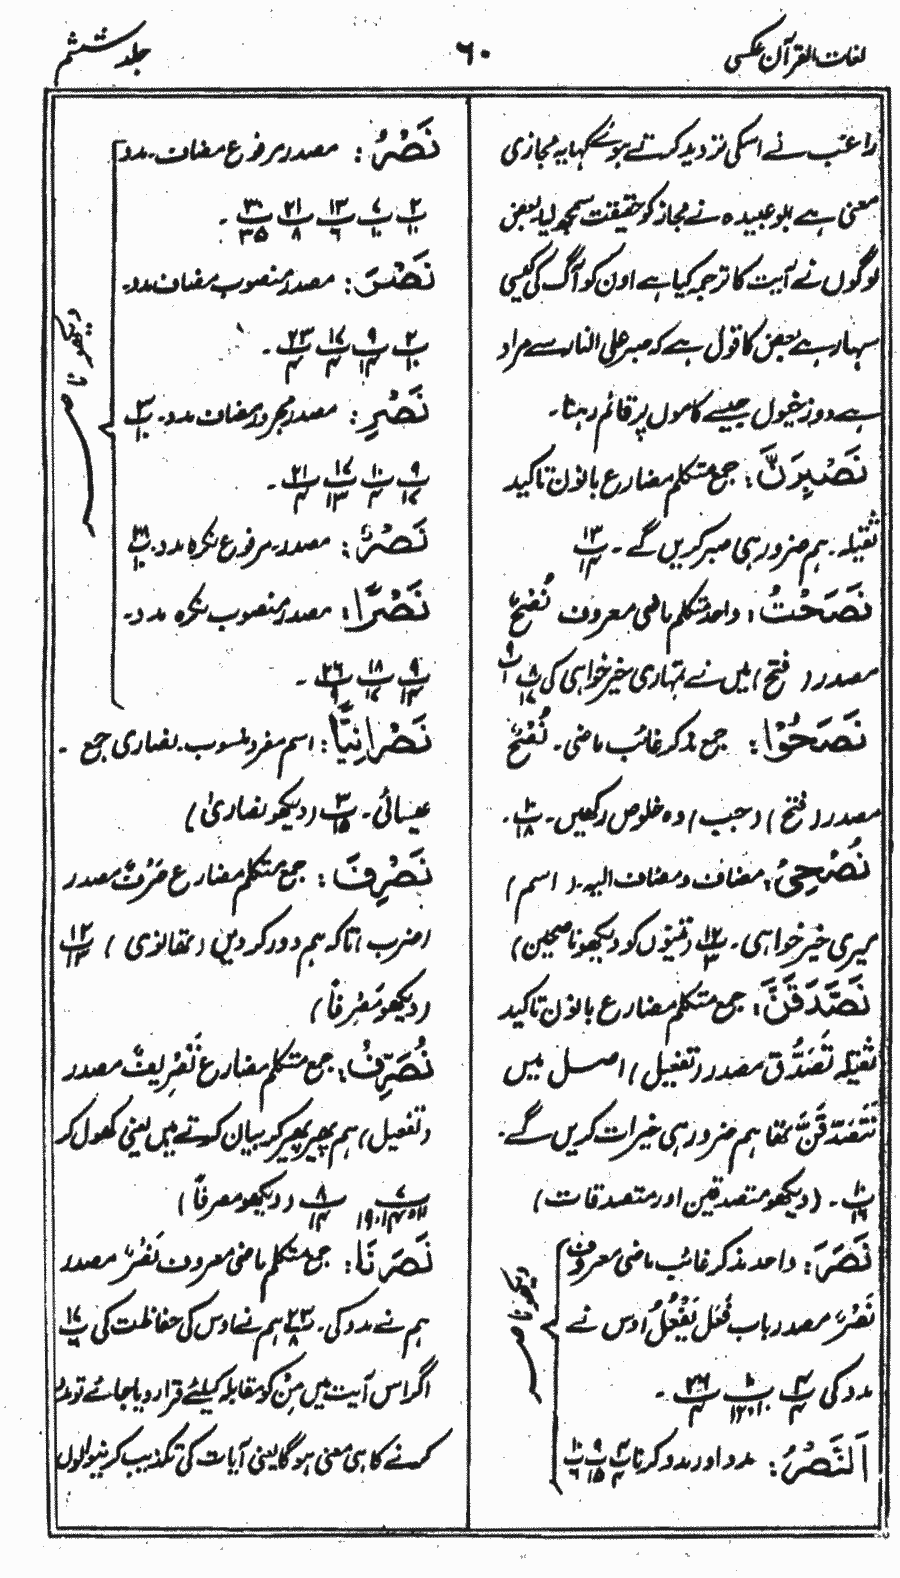 لغات القرآن عکسی
۶۰
جلد ششم
راغب نے اسکی تردید کرتے ہوئے کہا یہ مجازی
معنی ہے ابو عبیدہ نے مجاز کو حقیقت سمجھ لیا بعض
لوگوں نے آیت کا ترجمہ کیا ہے اون کو آگ کی کیسی
سہار ہے بعض کا قول ہے کہ صبر علی النار سے مراد
ہے دوزخیوں جیسے کاموں پر قائم رہنا۔
نَصْبِرَنَّ: جمع متکلم مضارع بانون تاکید
ثقیلہ۔ ہم ضرور ہی صبر کریں گے۔ ۱۳/۱۴
نَصَحْتُ: واحد متکلم ماضی معروف نُصْحٌ
مصدر (فتح) میں نے تمہاری خیر خواہی کی ۸/۱۷ ۹/۱
نَصَحُوْا: جمع مذکر غائب ماضی۔ نُصْحٌ
مصدر (فتح) (جب) وہ خلوص رکھیں۔ ۱۰/۱۸۔
نُصْحِیْ: مضاف و مضاف الیہ۔ (اسم)
میری خیر خواہی۔ ۱۲/۳ (تینوں کو دیکھو ناصحین)
نَصَّدَّقَنَّ: جمع متکلم مضارع بانون تاکید
ثقیلہ تَصَدُّق مصدر (تفعیل) اصل میں
نَتَصَدَّقَنَّ تھا ہم ضرور ہی خیرات کریں گے۔
۱۰/۱۶۔ (دیکھو متصدقین اور متصدقات)
نَصَرَ: واحد مذکر غائب ماضی معروف
نَصْرٌ مصدر باب فَعَلَ یَفْعُلُ اوس نے
مدد کی ۴/۴ ۱۰/۱۲،۱۰ ۲۶/۴۔
اَلنَّصْرُ: مدد اور مدد کرنا ۴/۴ ۹/۱۵ ۱۰/۶
دیکھو ناصر
نَصْرُ: مصدر مرفوع مضاف۔ مدد
۲/۱۰ ۷/۱۰ ۱۳/۶ ۲۱/۸ ۳۰/۳۵۔
نَصْرَ: مصدر منصوب مضاف مدد۔
۲/۱۰ ۹/۱۴ ۱۷/۴ ۲۳/۴۔
نَصْرِ: مصدر مجرور مضاف مدد۔ ۳/۱۰
۹/۱۷ ۱۰/۴ ۱۷/۱۳ ۲۱/۴۔
نَصْرٌ: مصدر۔ مرفوع نکرہ مدد۔ ۳/۱۰
نَصْرًا: مصدر منصوب نکرہ مدد۔
۹/۱۴ ۱۸/۱۷ ۲۶/۹۔
دیکھو ناصر
نَصْرَانِیًّا: اسم مفرد منسوب۔ نصاری جمع۔
عیسائی۔ ۳/۱۵ (دیکھو نصاریٰ)
نَصْرِفَ: جمع متکلم مضارع صَرْفٌ مصدر
(ضرب) تاکہ ہم دور کر دیں (تھانوی) ۱۲/۱۳
(دیکھو مَصْرِفاً)
نُصَرِّفُ: جمع متکلم مضارع تَصْرِیْفٌ مصدر
(تفعیل) ہم پھیر پھیر کر بیان کرتے ہیں یعنی کھول کر
۷/۱۹،۱۴،۱۱ ۸/۱۴ (دیکھو مصرفاً)
نَصَرْنَا: جمع متکلم ماضی معروف نَصْرٌ مصدر
ہم نے مدد کی۔ ۲۳/۸ ہم نے اوس کی حفاظت کی ۱۷/۶
اگر اس آیت میں مِنْ کو مقابلہ کیلئے قرار دیا جائے تو مدد
کرنے کا ہی معنی ہوگا یعنی آیات کی تکذیب کرنیوالوں